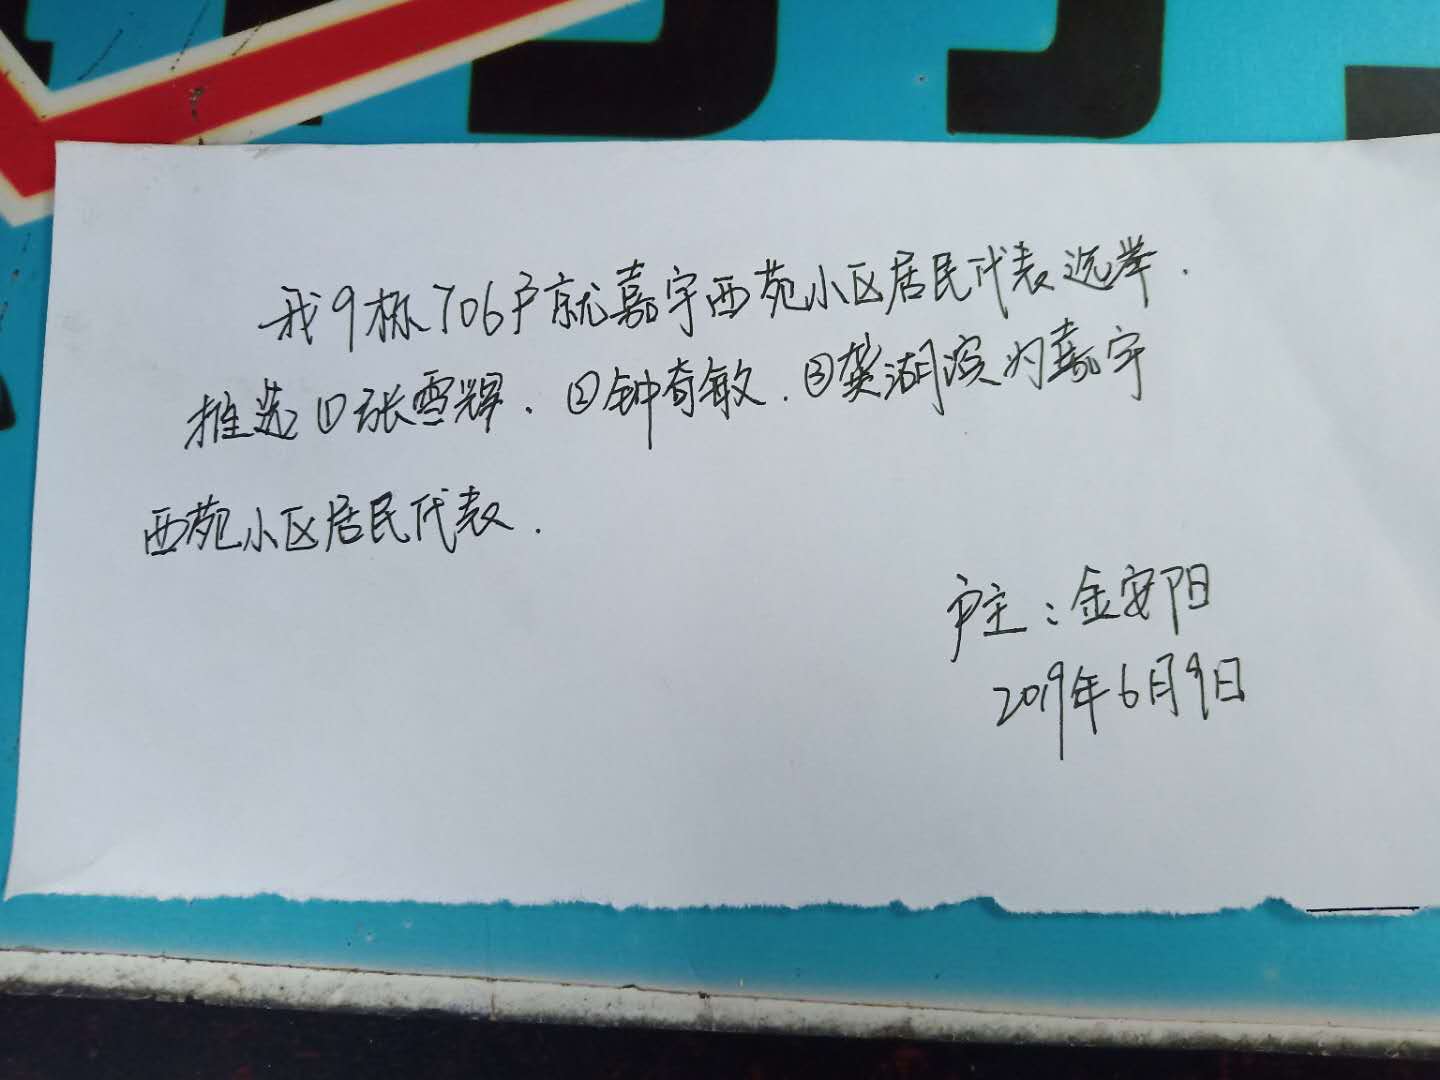 我9栋706户就嘉宇西苑小区居民代表选举.
推选①张雪辉.②钟奇敏.③龚湖滨为嘉宇
西苑小区居民代表.
户主:金安阳
2019年6月9日